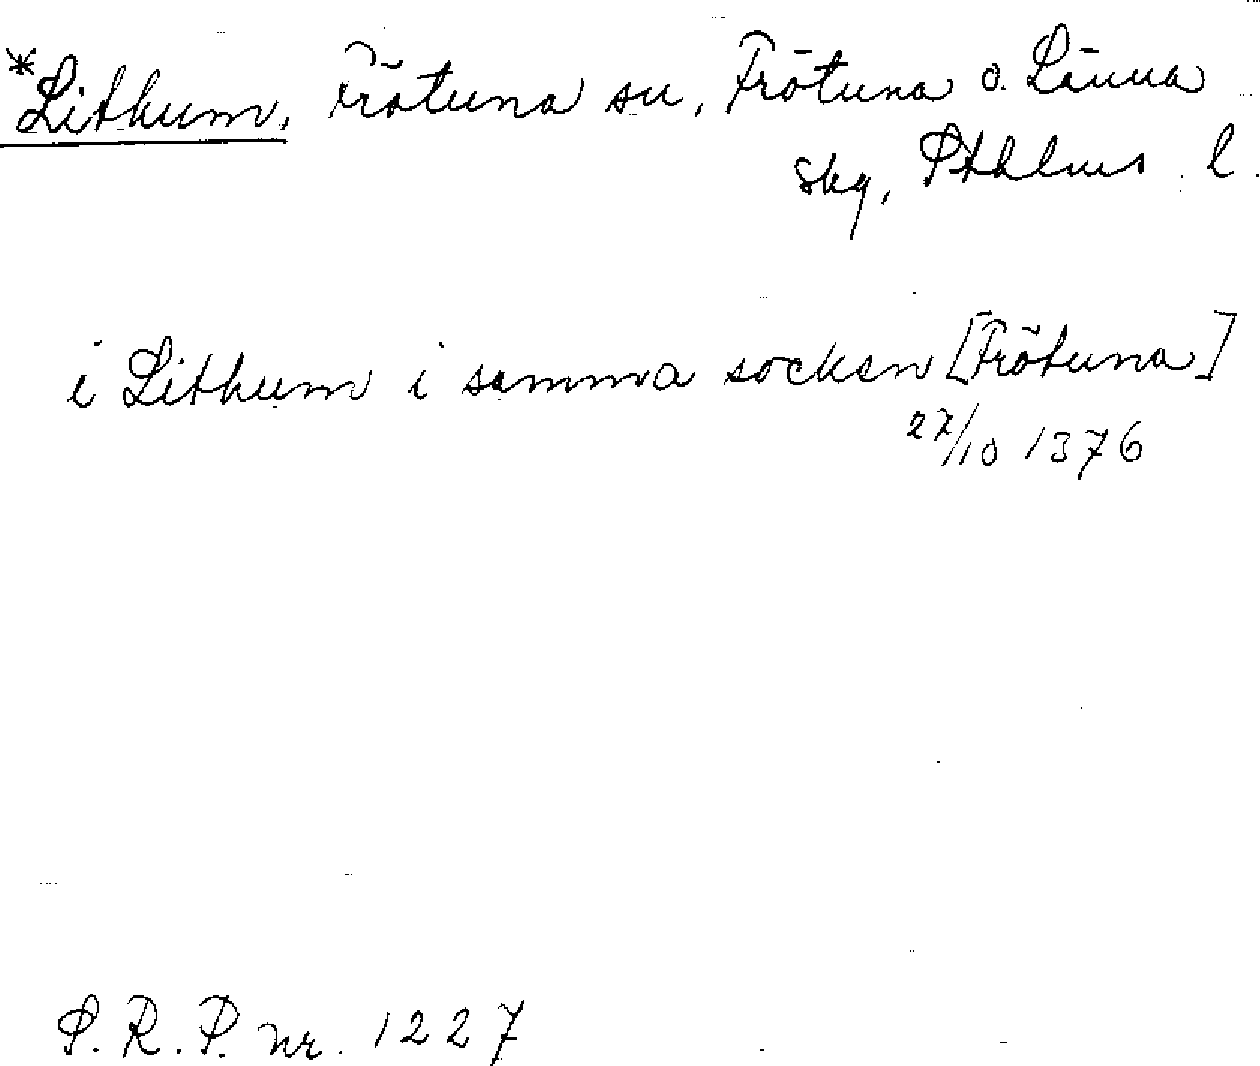 *Lithum, Frötuna sn, Frötuna o. Länna
skg, Sthlms l.
i Lithum i samma socken [Frötuna]
27/10 1376
S. R. P. nr. 1227